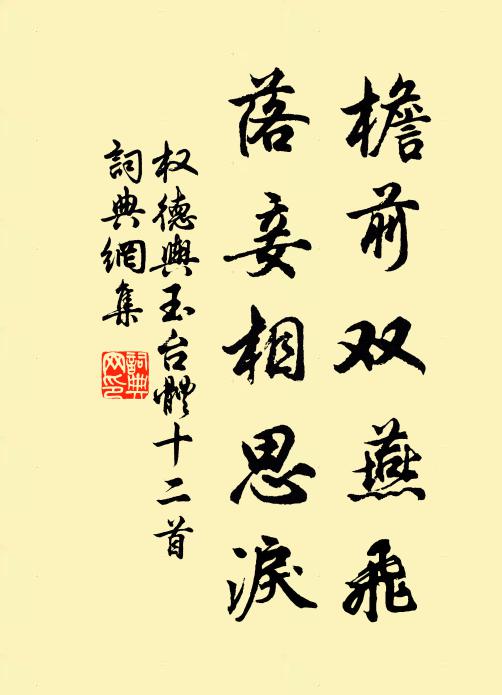 檐前双燕飛
落妾相思淚
权德輿玉台體十二首
詞典網集
詞典网印